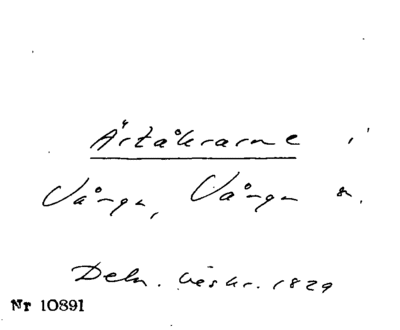 Ärtåkrarne i
Vånga, Vånga s.
Deln. beskr. 1829
Nr 10891